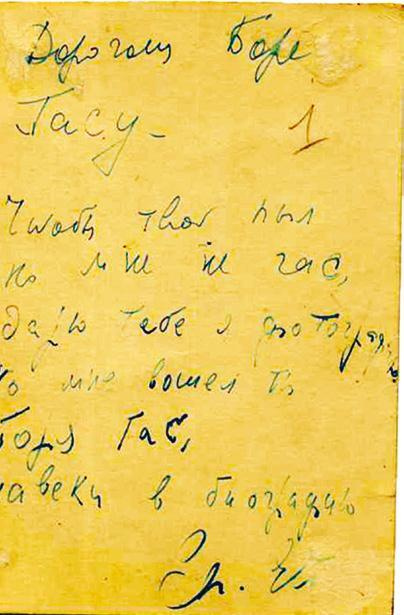 Дорогому Боре
Гасу - 1
Чтобы твой пыл
ко мне не гас,
дарю тебе я фотографию
Ко мне вошел ты
Боря Гас,
навеки в биографию